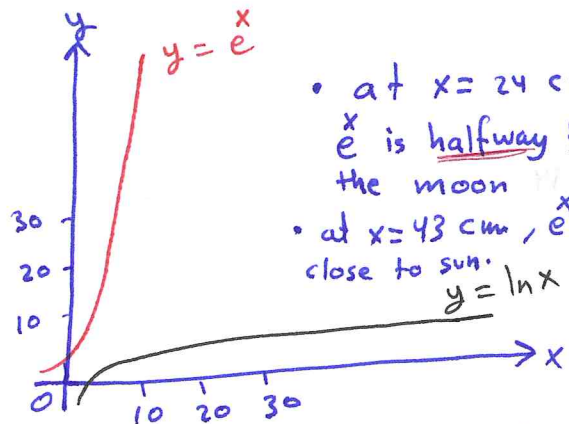 y
y = e^x
• at x = 24 c
e^x is halfway
the moon
• at x = 43 cm, e^x
close to sun.
y = ln x
30
20
10
x
0
10 20 30